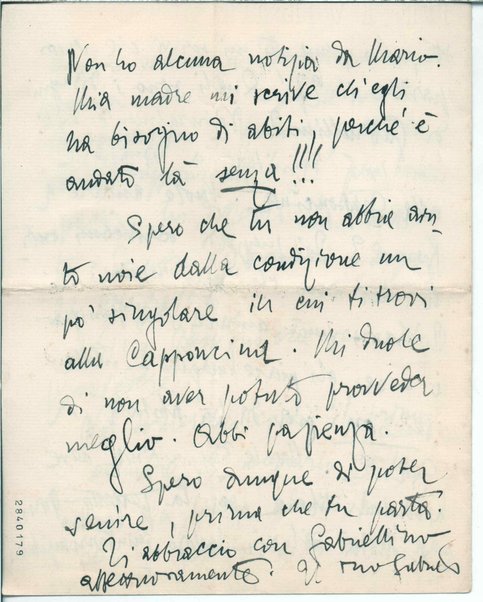 Non ho alcuna notizia da Mario.
Mia madre mi scrive ch'egli
ha bisogno di abiti, perché è
andato là senza!!!
Spero che tu non abbia avu-
to noie dalla condizione un
po' singolare in cui ti trovi
alla Capponcina. Mi duole
di non aver potuto provveder
meglio. Abbi pazienza.
Spero dunque di poter
venire, prima che tu parta.
Ti abbraccio con Gabriellino
affettuosamente. Il tuo Gabriele
2840179